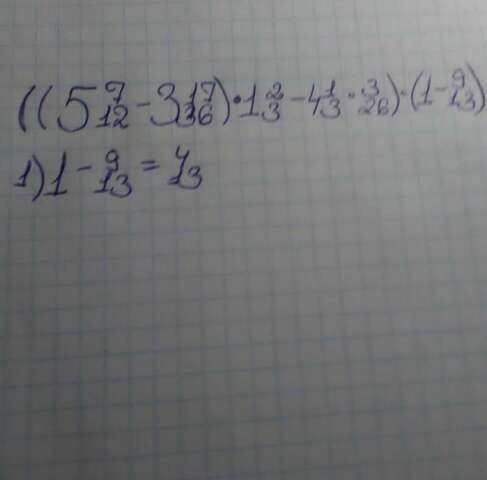 ((5 7/12 - 3 17/36) · 1 2/3 - 4 1/3 · 3/26) · (1 - 9/13)
1) 1 - 9/13 = 4/13